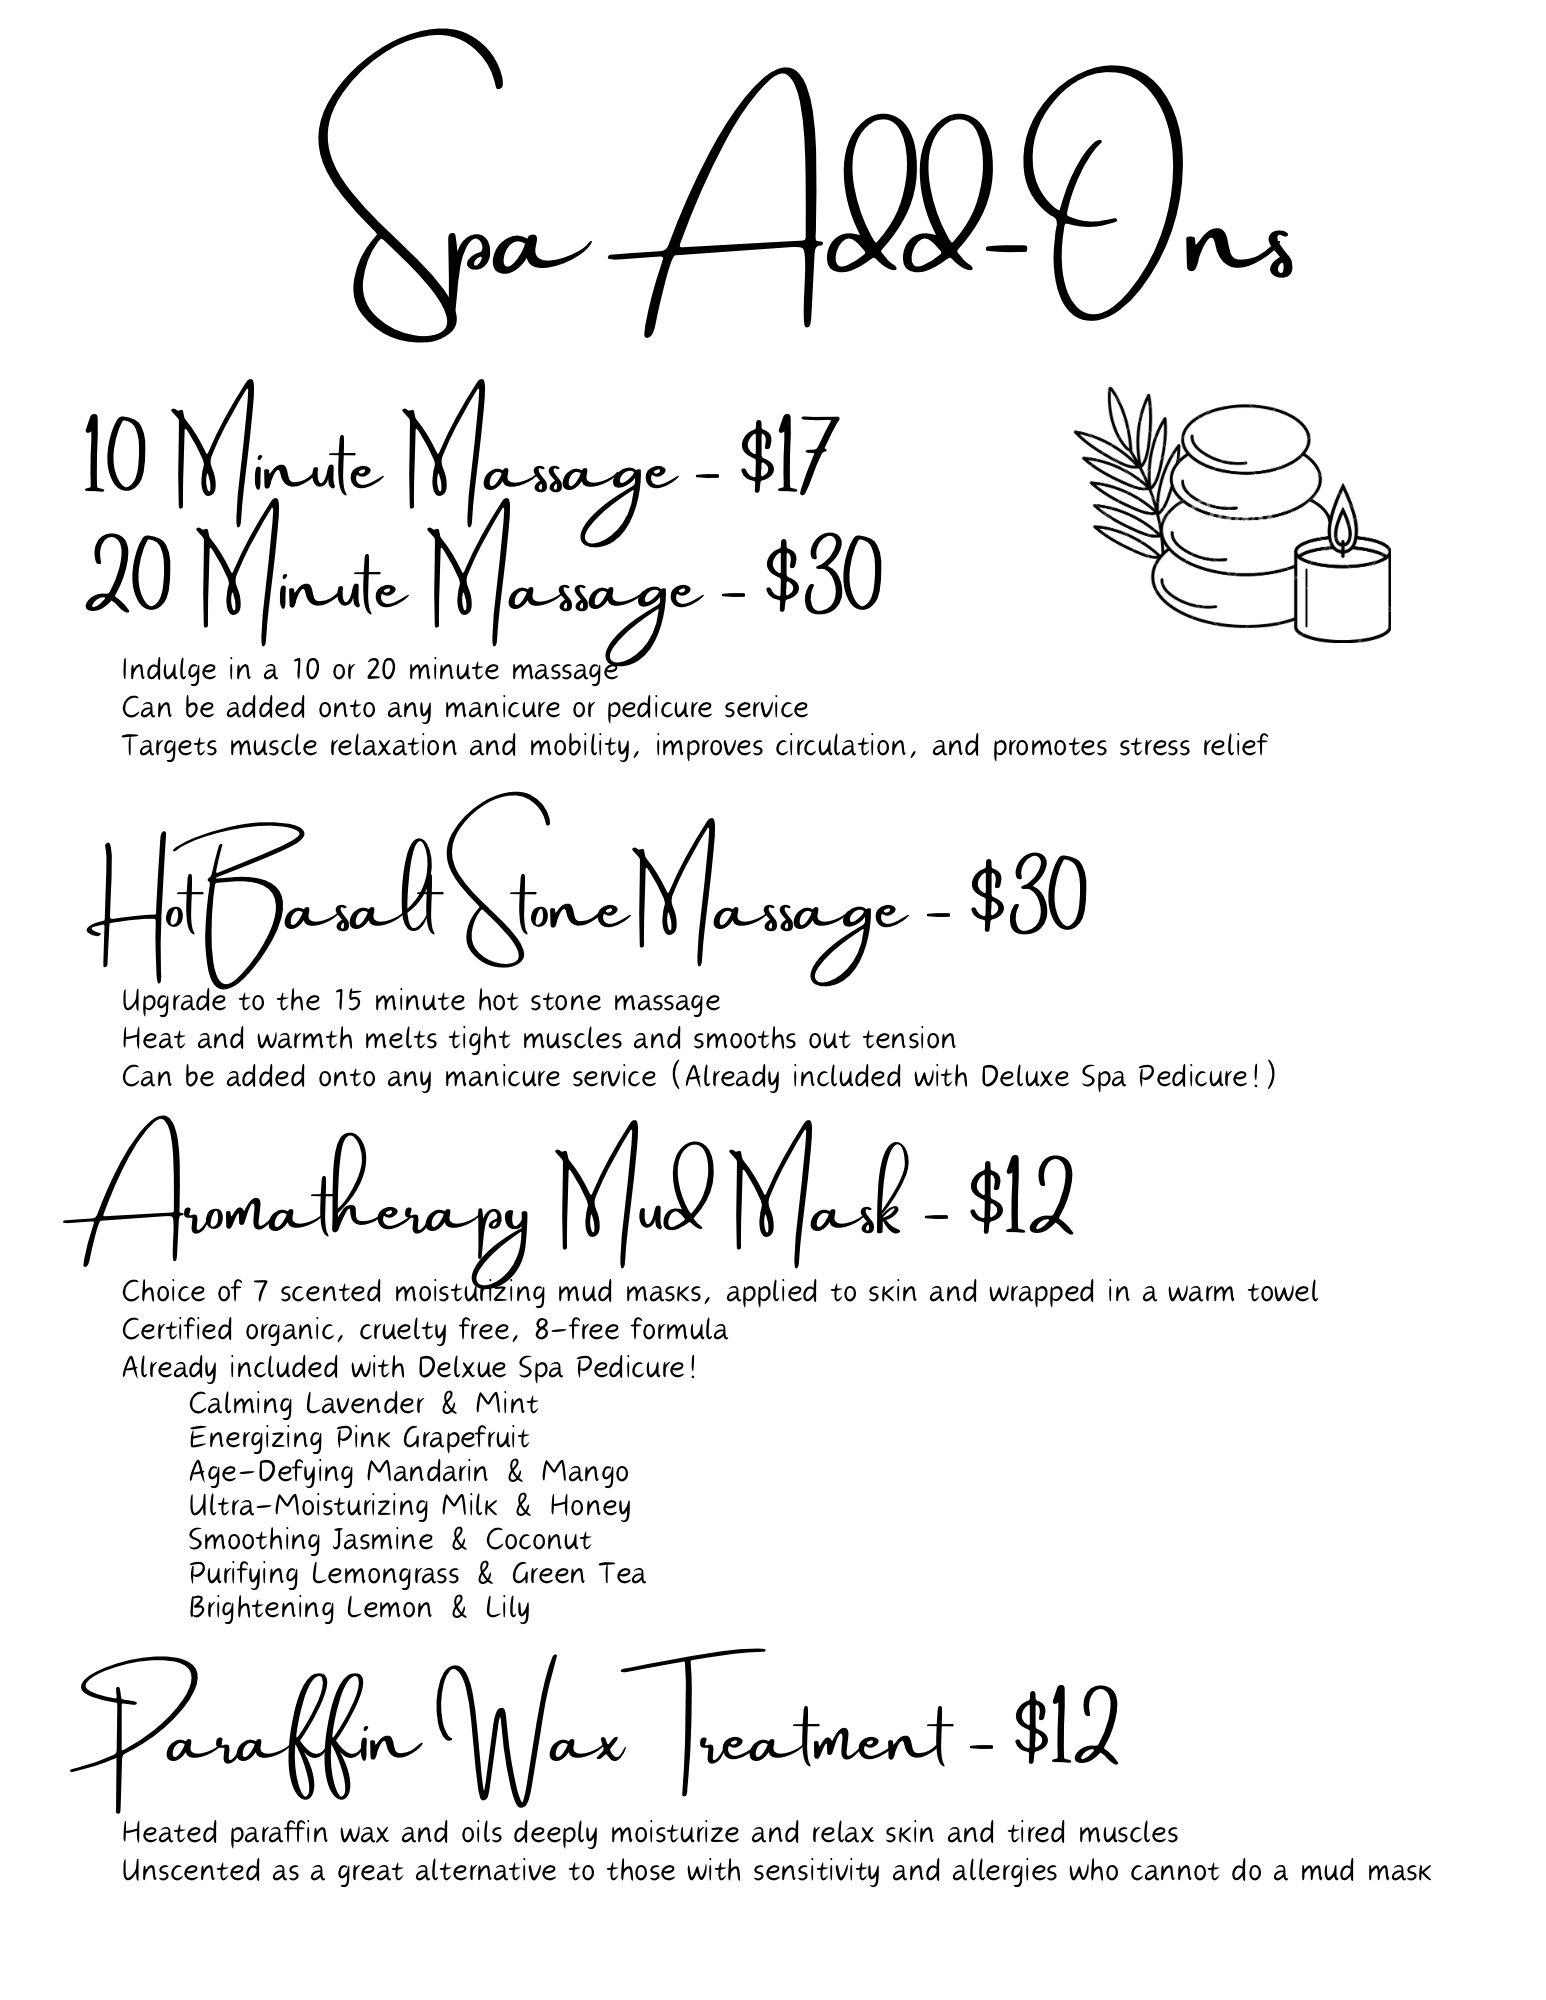 Spa Add-Ons
10 Minute Massage - $17
20 Minute Massage - $30
Indulge in a 10 or 20 minute massage
Can be added onto any manicure or pedicure service
Targets muscle relaxation and mobility, improves circulation, and promotes stress relief
Hot Basalt Stone Massage - $30
Upgrade to the 15 minute hot stone massage
Heat and warmth melts tight muscles and smooths out tension
Can be added onto any manicure service (Already included with Deluxe Spa Pedicure!)
Aromatherapy Mud Mask - $12
Choice of 7 scented moisturizing mud masks, applied to skin and wrapped in a warm towel
Certified organic, cruelty free, 8-free formula
Already included with Delxue Spa Pedicure!
Calming Lavender & Mint
Energizing Pink Grapefruit
Age-Defying Mandarin & Mango
Ultra-Moisturizing Milk & Honey
Smoothing Jasmine & Coconut
Purifying Lemongrass & Green Tea
Brightening Lemon & Lily
Paraffin Wax Treatment - $12
Heated paraffin wax and oils deeply moisturize and relax skin and tired muscles
Unscented as a great alternative to those with sensitivity and allergies who cannot do a mud mask